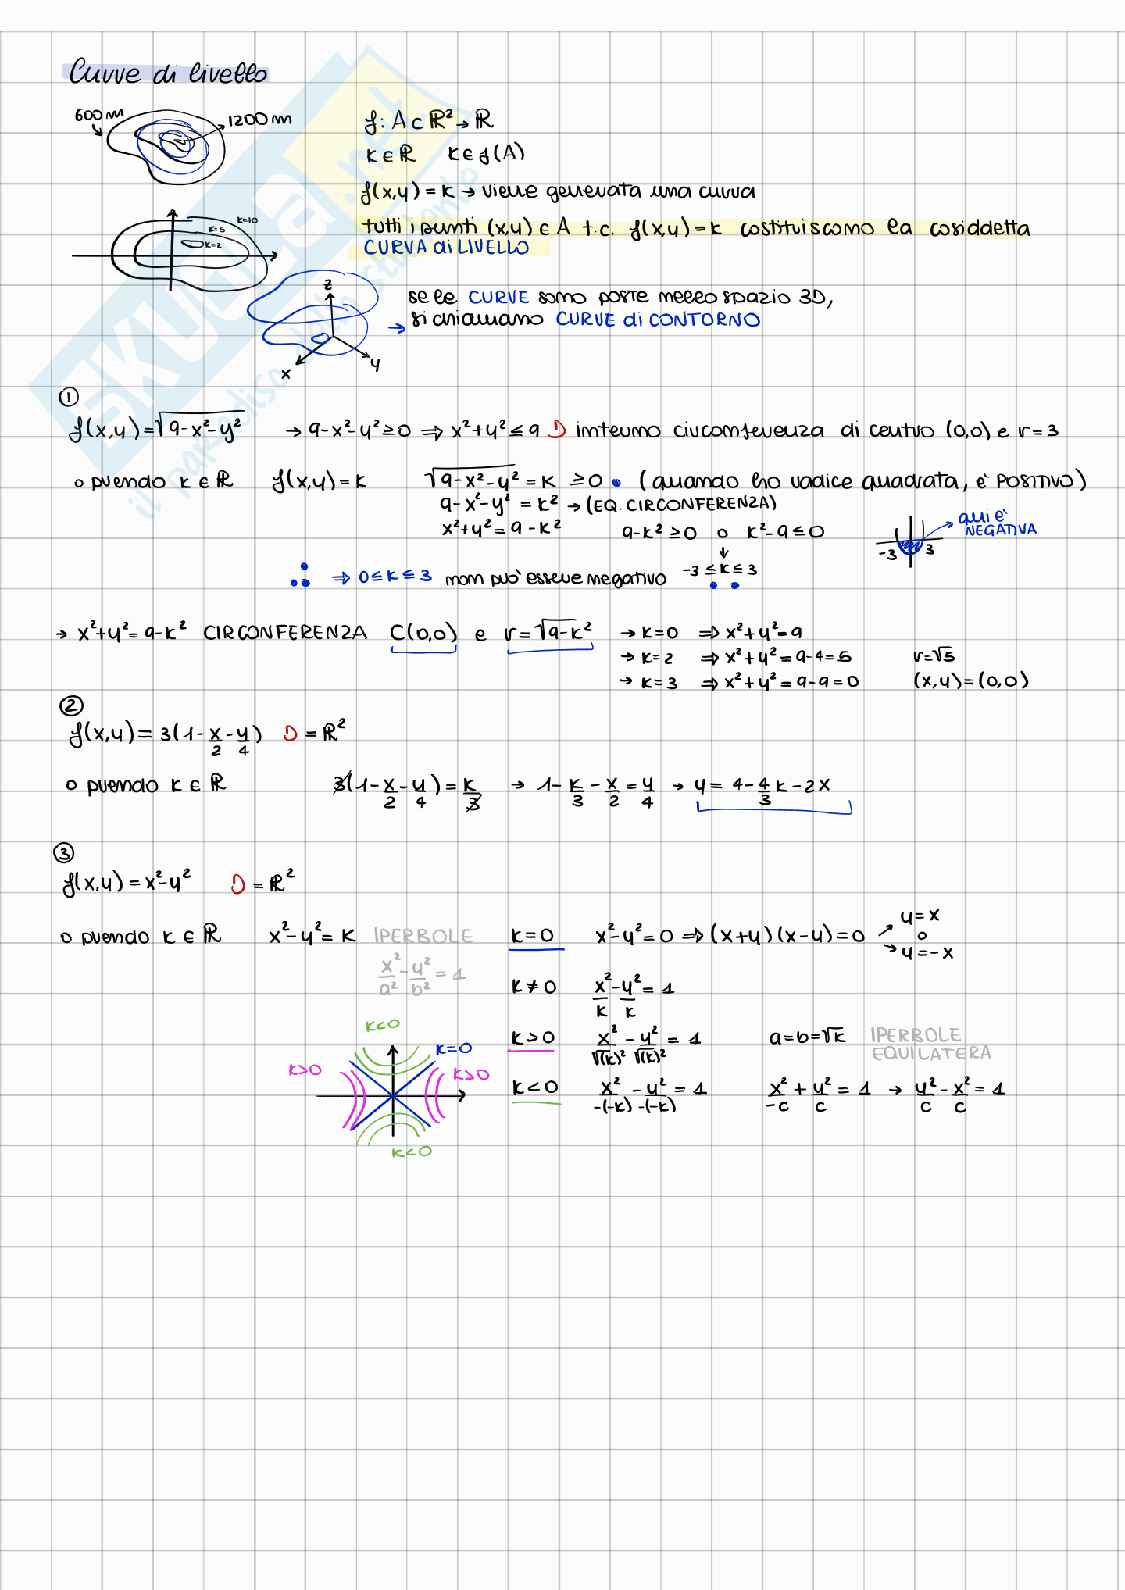 Curve di livello
600 m
1200 m
f: A ⊂ ℝ² → ℝ
k ∈ ℝ k ∈ f(A)
f(x,y) = k → viene generata una curva
tutti i punti (x,y) ∈ A t.c. f(x,y) = k costituiscono la cosiddetta
CURVA di LIVELLO
k=10
k=5
k=2
z
x
y
se le CURVE sono poste nello spazio 3D,
→ si chiamano CURVE di CONTORNO
①
f(x,y) = √(9-x²-y²) → 9-x²-y² ≥ 0 ⇒ x²+y² ≤ 9 D interno circonferenza di centro (0,0) e r = 3
o prendo k ∈ ℝ f(x,y) = k √(9-x²-y²) = k ≥ 0 • (quando ho radice quadrata, è POSITIVO)
9-x²-y² = k² → (EQ. CIRCONFERENZA)
x²+y² = 9-k² 9-k² ≥ 0 o k²-9 ≤ 0
↓
-3 ≤ k ≤ 3
-3 3
qui è NEGATIVA
∴ ⇒ 0 ≤ k ≤ 3 non può essere negativo
→ x²+y² = 9-k² CIRCONFERENZA C(0,0) e r = √(9-k²) → k=0 ⇒ x²+y²=9
→ k=2 ⇒ x²+y² = 9-4=5 r=√5
→ k=3 ⇒ x²+y² = 9-9=0 (x,y) = (0,0)
②
f(x,y) = 3(1-x/2-y/4) D = ℝ²
o prendo k ∈ ℝ 3(1-x/2-y/4) = k/3 → 1-k/3-x/2 = y/4 → y = 4-4/3k-2x
③
f(x,y) = x²-y² D = ℝ²
o prendo k ∈ ℝ x²-y² = k IPERBOLE k=0 x²-y²=0 ⇒ (x+y)(x-y)=0 y=x o y=-x
x²/a² - y²/b² = 1
k≠0 x²/k - y²/k = 1
k>0 x²/(√k)² - y²/(√k)² = 1 a=b=√k IPERBOLE EQUILATERA
k<0 x²/-(-k) - y²/-(-k) = 1 x²/-c + y²/c = 1 → y²/c - x²/c = 1
k<0
k=0
k>0
k>0
k<0
SKUOLA.net
il paradiso dello studente